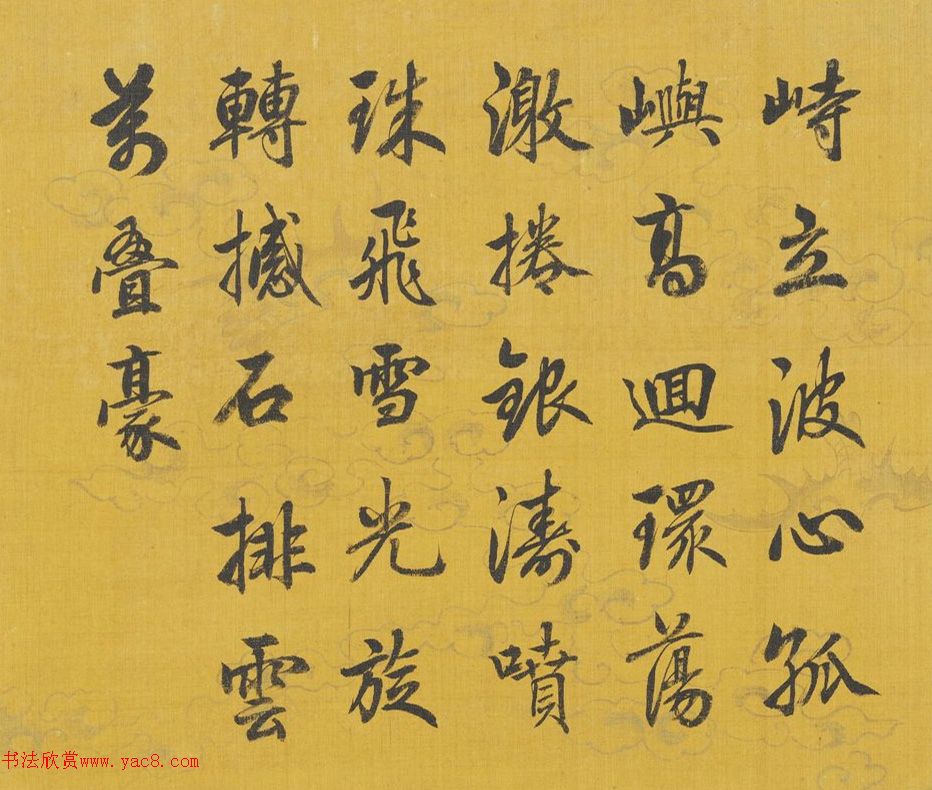 峙立波心孤
嶼高迴環蕩
激捲銀濤噴
珠飛雪光旋
轉撼石排雲
萬疊豪
书法欣赏www.yac8.com